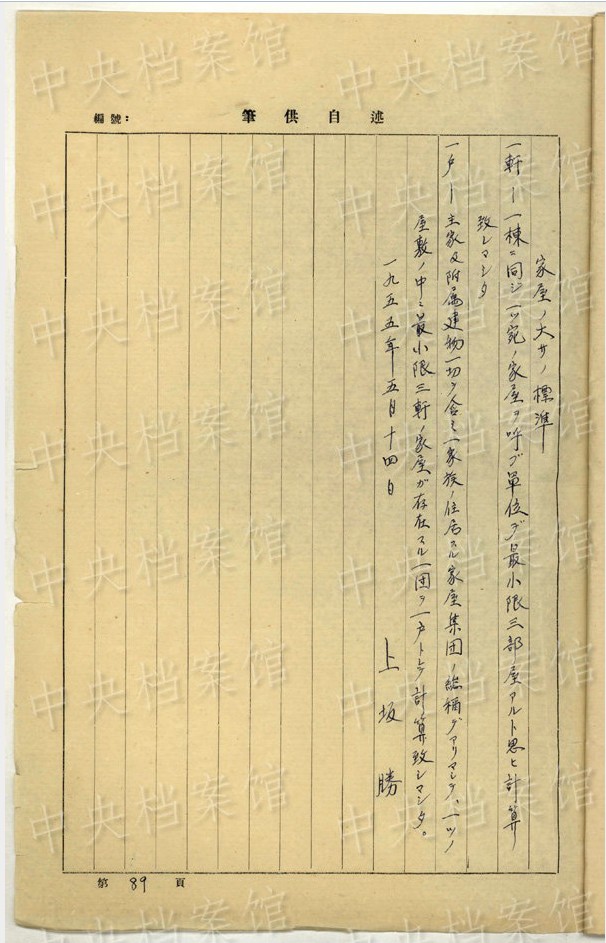 編號:
述自供筆
家屋ノ大サノ標準
一軒ー一棟ニ同ジ一ッ宛ノ家屋ヲ呼ブ單位デ最小限三部屋アルト思ヒ計算
致シマシタ
一戸ー主家及附属建物一切ヲ含ミ一家族ノ住居スル家屋集団ノ総稱デアリマシテ、一ツノ
屋敷ノ中ニ最小限三軒ノ家屋ガ存在スル一団ヲ一戸トシ計算致シマシタ。
一九五五年五月十四日
上坂勝
第 89 頁
中央档案馆